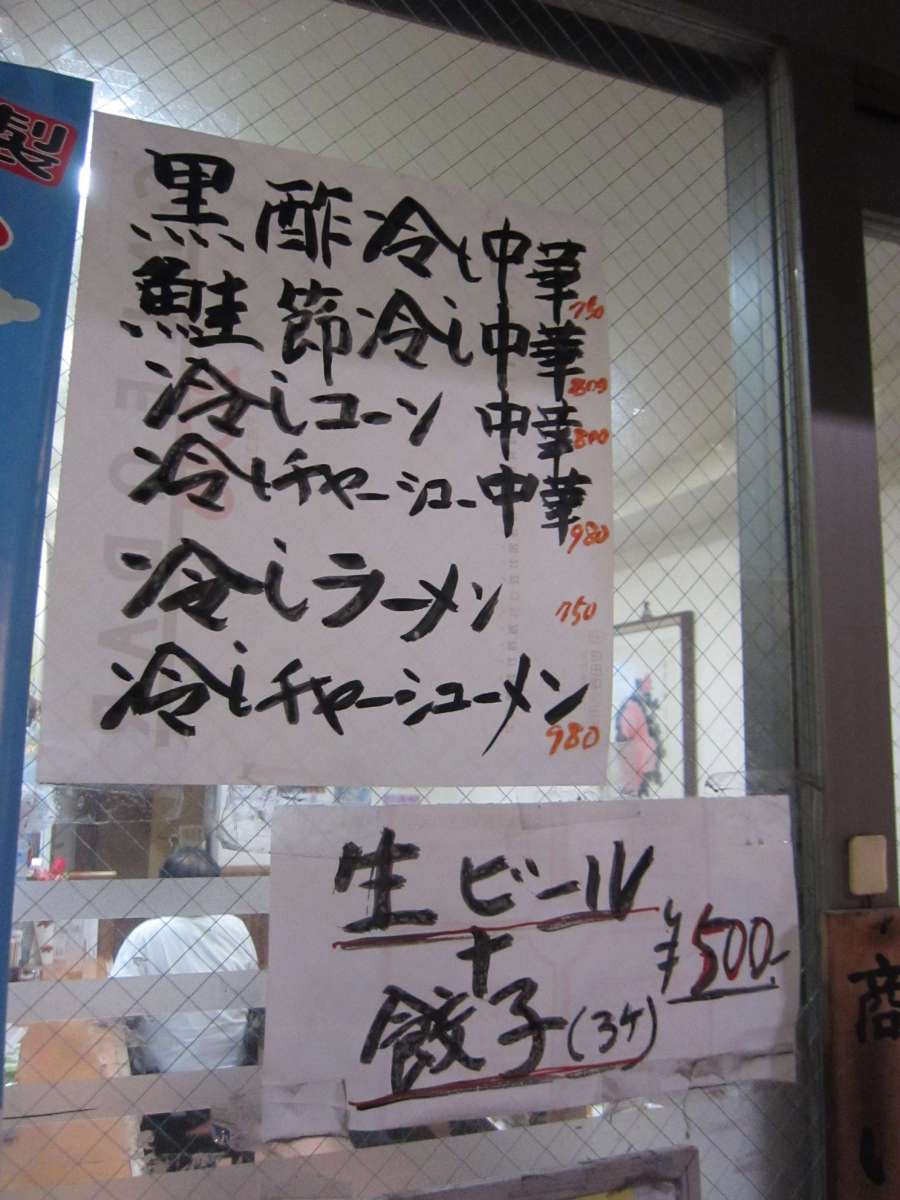 製
黒酢冷し中華 750
鮭節冷し中華 800
冷しコーン中華 800
冷しチャーシュー中華 980
冷しラーメン 750
冷しチャーシューメン 980
生ビール
+
餃子(3ケ)
¥500.-
商い